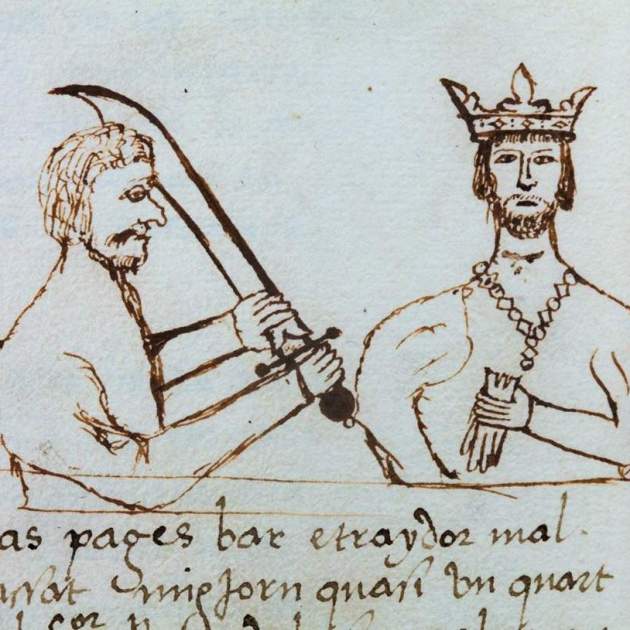 as pages bar etraydor mal.
assat migjorn quasi vn quart